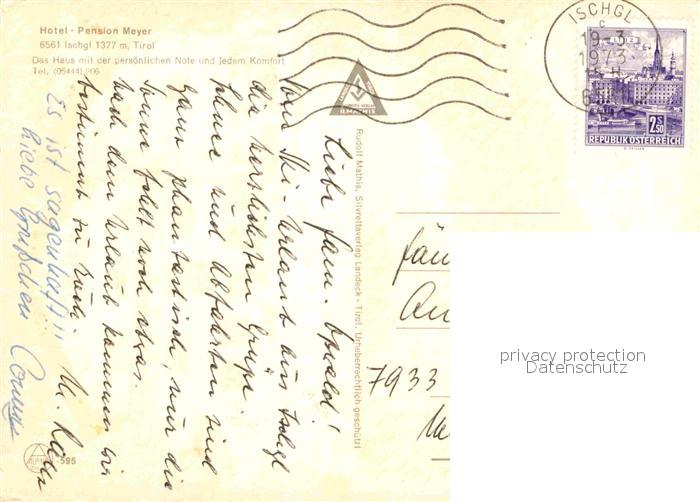 Hotel - Pension Meyer
6561 Ischgl 1377 m, Tirol
Das Haus mit der persönlichen Note und jedem Komfort
Tel. (05444) 206
ISCHGL
c
19-3
1973
2 S 50
REPUBLIK ÖSTERREICH
Liebe Fam. Oswald!
Vom Ski-Urlaub aus Ischgl
die herzlichsten Grüße.
Schnee und Abfahrten sind
ganz phantastisch, nur die
Sonne fehlt noch etwas.
Nach dem Urlaub kommen wir
bestimmt zu Euch.
Es ist sagenhaft!!!
liebe Grüßchen Conny
Rudolf Mathis, Silvrettaverlag Landeck - Tirol. Urheberrechtlich geschützt
7933
privacy protection
Datenschutz
-595